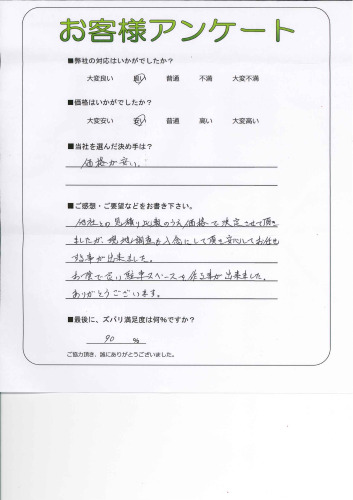 お客様アンケート
■弊社の対応はいかがでしたか?
大変良い 良い 普通 不満 大変不満
■価格はいかがでしたか?
大変安い 安い 普通 高い 大変高い
■当社を選んだ決め手は?
価格が安い.
■ご感想・ご要望などをお書き下さい。
他社との見積り比較のうえ価格で決定させて頂き
ましたが、現地調査も入念にして頂き安心してお任せ
する事が出来ました。
お陰で広い駐車スペースを作る事が出来ました。
ありがとうございます。
■最後に、ズバリ満足度は何%ですか?
90 %
ご協力頂き、誠にありがとうございました。